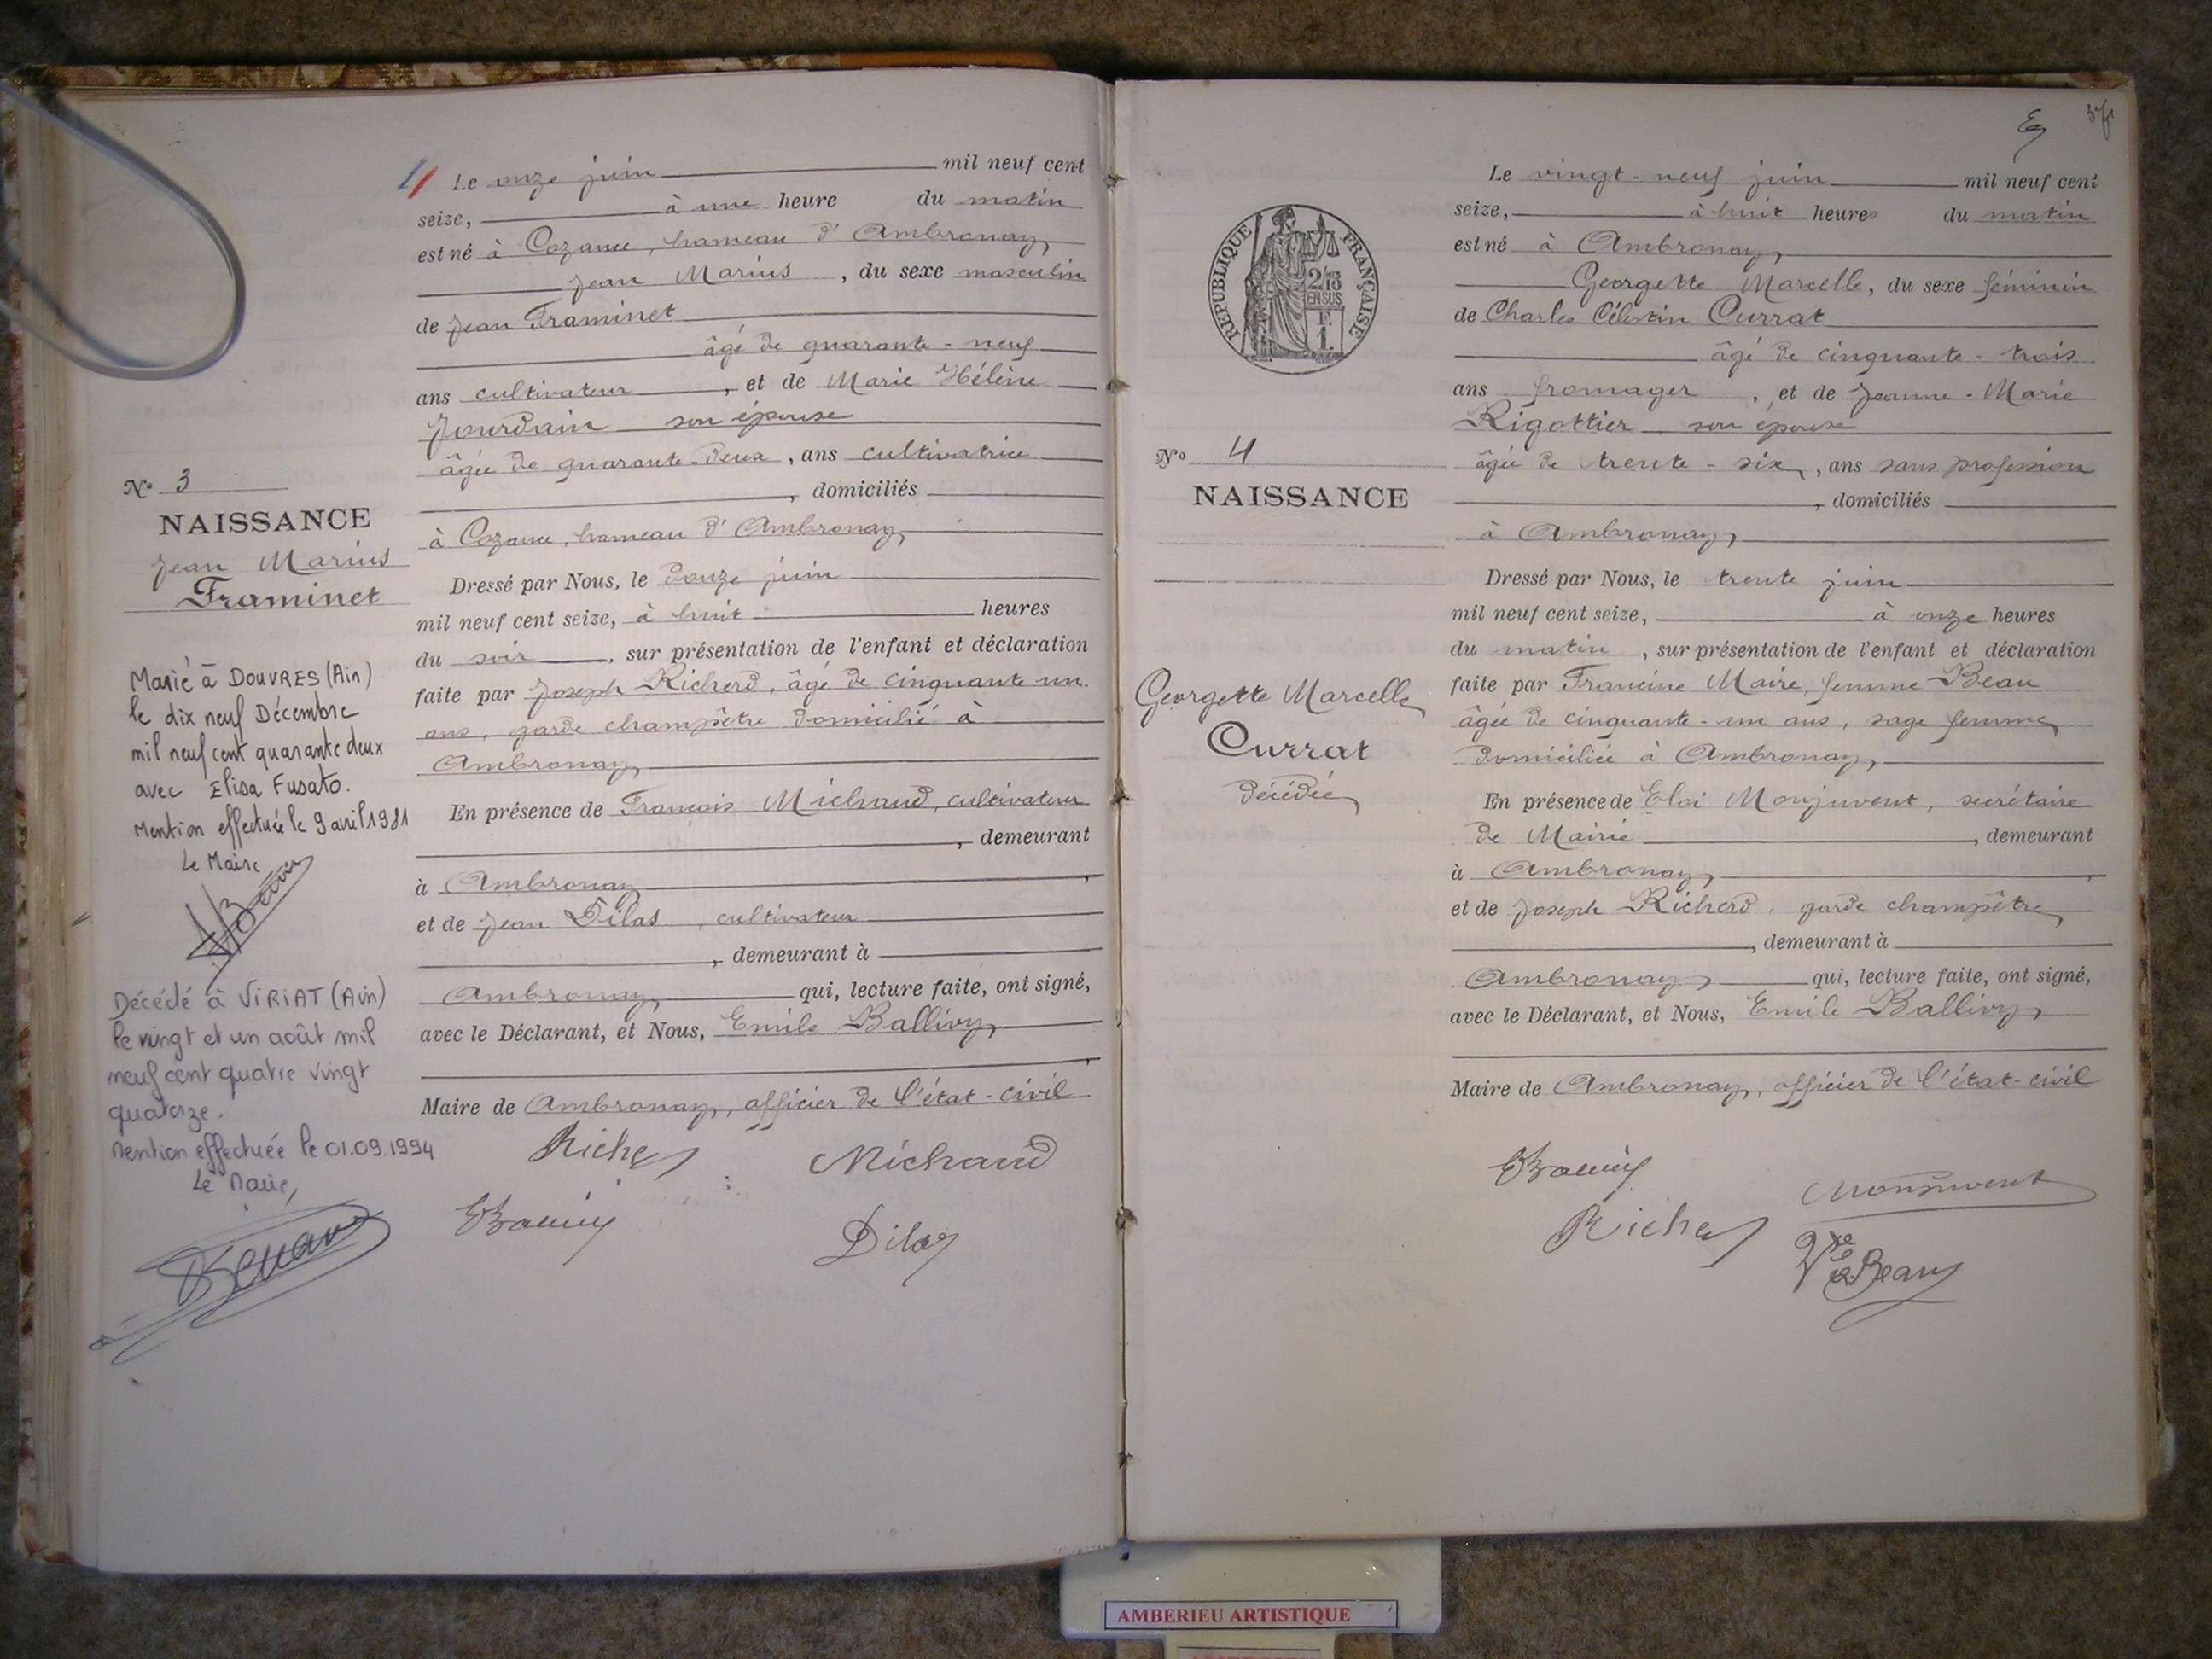 Le onze juin mil neuf cent
seize, à une heure du matin
est né à Cozance, hameau d'Ambronay,
Jean Marius, du sexe masculin
de Jean Framinet
âgé de quarante-neuf
ans cultivateur, et de Marie Hélène
Jourdain son épouse
âgée de quarante-deux, ans cultivatrice
, domiciliés
à Cozance, hameau d'Ambronay,
Dressé par Nous, le douze juin
mil neuf cent seize, à huit heures
du soir, sur présentation de l'enfant et déclaration
faite par Joseph Richerd, âgé de cinquante un
ans, garde champêtre domicilié à
Ambronay,
En présence de François Michaud, cultivateur
, demeurant
à Ambronay,
et de Jean Dilas, cultivateur
, demeurant à
Ambronay, qui, lecture faite, ont signé,
avec le Déclarant, et Nous, Emile Ballivy,
Maire de Ambronay, officier de l'état-civil
Michaud
Dilas
N° 3
NAISSANCE
Jean Marius
Framinet
Marié à DOUVRES (Ain)
le dix neuf Décembre
mil neuf cent quarante deux
avec Elisa Fusato.
Mention effectuée le 9 avril 1981
Le Maire
Décédé à VIRIAT (Ain)
le vingt et un août mil
neuf cent quatre vingt
quatorze.
Mention effectuée le 01.09.1994
Le Maire,
RÉPUBLIQUE FRANÇAISE
2/10
EN SUS
F.
1.
N° 4
NAISSANCE
Georgette Marcelle
Currat
décédée
Le vingt-neuf juin mil neuf cent
seize, à huit heures du matin
est né à Ambronay,
Georgette Marcelle, du sexe féminin
de Charles Célestin Currat
âgé de cinquante-trois
ans fromager, et de Jeanne-Marie
Rigottier son épouse
âgée de trente-six, ans sans profession
, domiciliés
à Ambronay,
Dressé par Nous, le trente juin
mil neuf cent seize, à onze heures
du matin, sur présentation de l'enfant et déclaration
faite par Francine Maire, femme Beau
âgée de cinquante-un ans, sage femme,
domiciliée à Ambronay,
En présence de Eloi Monjuvent, secrétaire
de Mairie, demeurant
à Ambronay,
et de Joseph Richerd, garde champêtre,
, demeurant à
Ambronay, qui, lecture faite, ont signé,
avec le Déclarant, et Nous, Emile Ballivy,
Maire de Ambronay, officier de l'état-civil
Monjuvent
Beau
AMBERIEU ARTISTIQUE